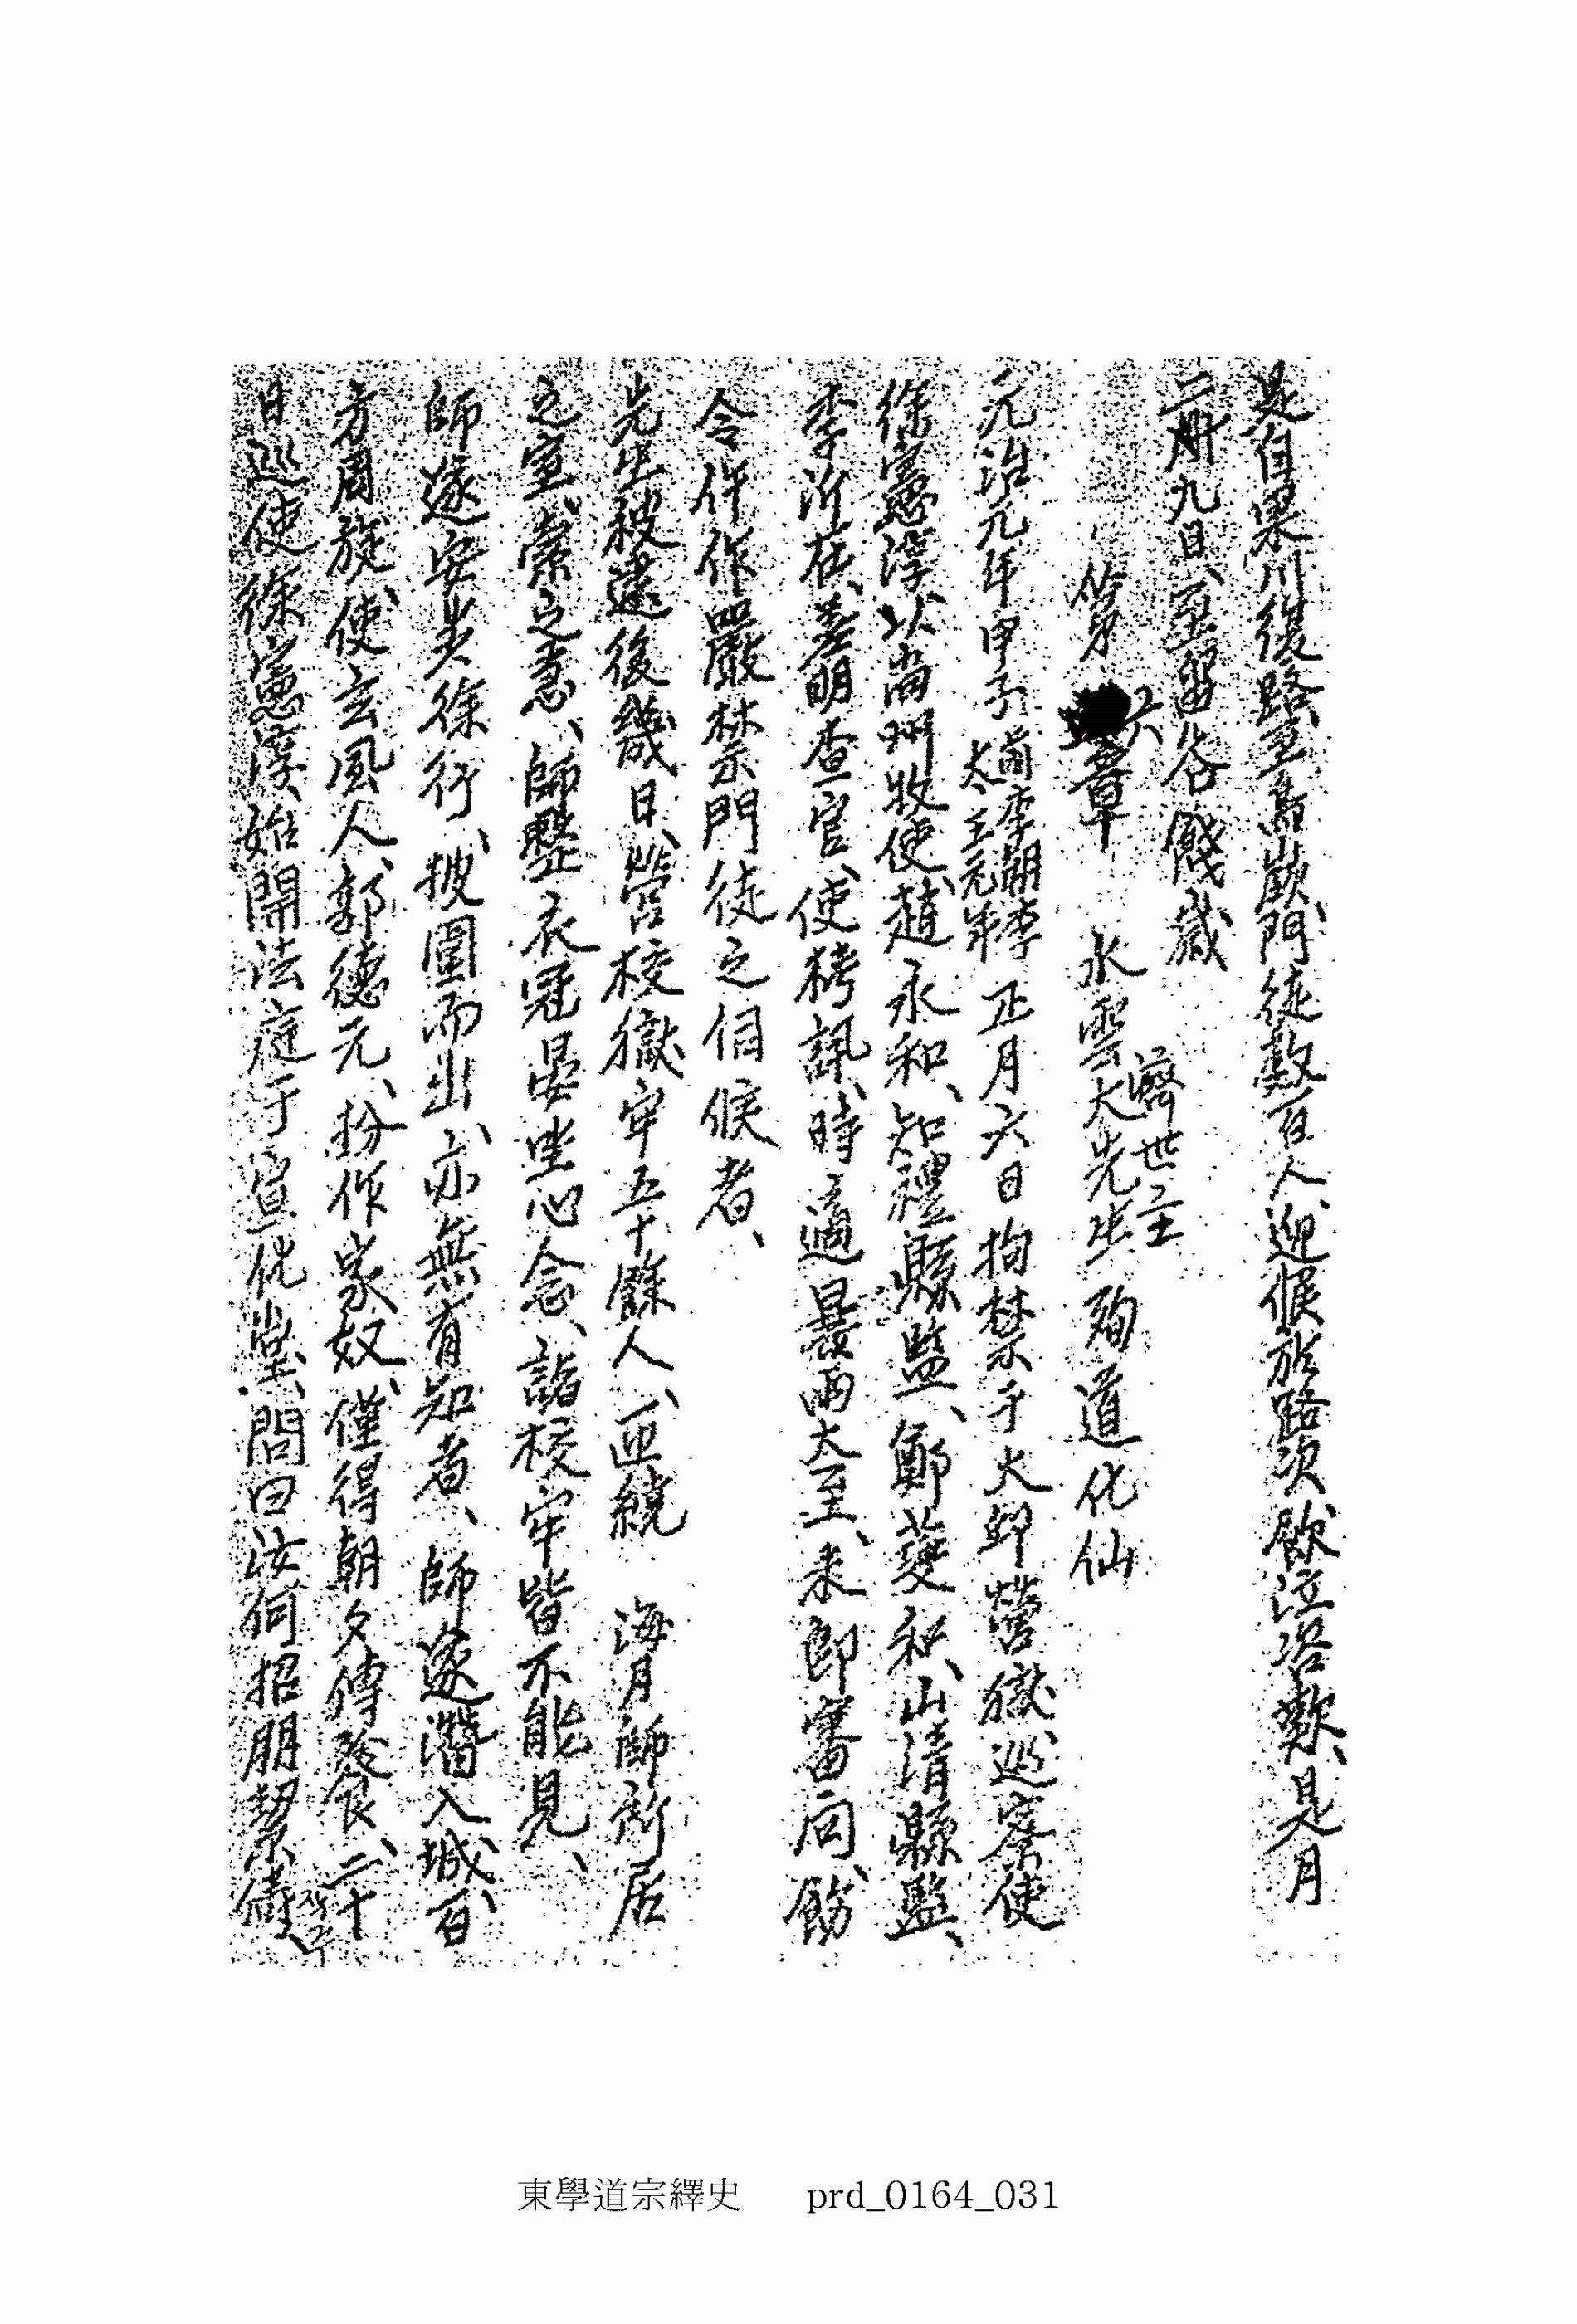 是自果川復路至鳥嶺、門徒數百人、迎候於路次、飮泣浩歎、是月
二十九日、至留谷餞歲
第六章 水雲大先生 濟世主 殉道化仙
元治元年甲子 前李朝李太王元年 正月六日拘禁于大邱營獄巡察使
徐憲淳、以尙州牧使、趙永和、知禮縣監、鄭夔和、山淸縣監、
李沂在、差明査官、使拷訊、時適暴雨大至、未卽審問、飭
令仵作嚴禁門徒之伺候者、
先生被逮後幾日、營校獄牢五十餘人、匝繞 海月師所居
之室、索之急、師整衣冠晏坐心念、詣校牢皆不能見、
師遂安步徐行、披圍而出、亦無有知者、師遂潛入城、百
方周旋、使玄風人、郭德元、扮作家奴、僅得朝夕傳餐食、二十
日巡使徐憲淳、始開法庭于宣化堂、問曰汝何招朋絜儔、
東學道宗繹史 prd_0164_031